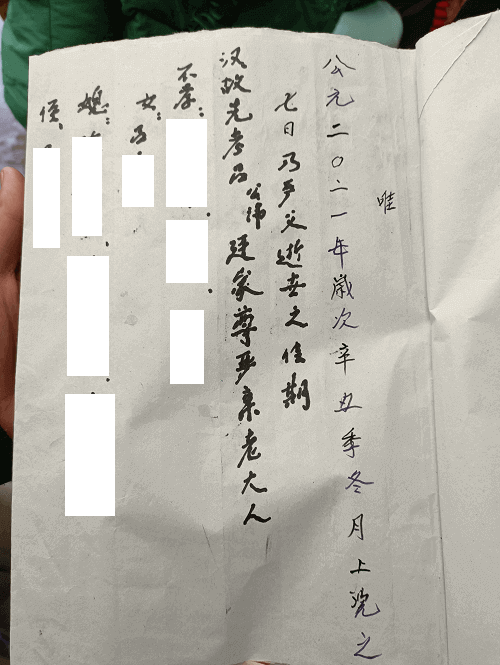 唯
公元二〇二一年歲次辛丑季冬月上浣之
七日乃严父逝世之佳期
汉故先考吕公讳建家尊严亲老大人
不孝：
女：吕
媳：
侄、